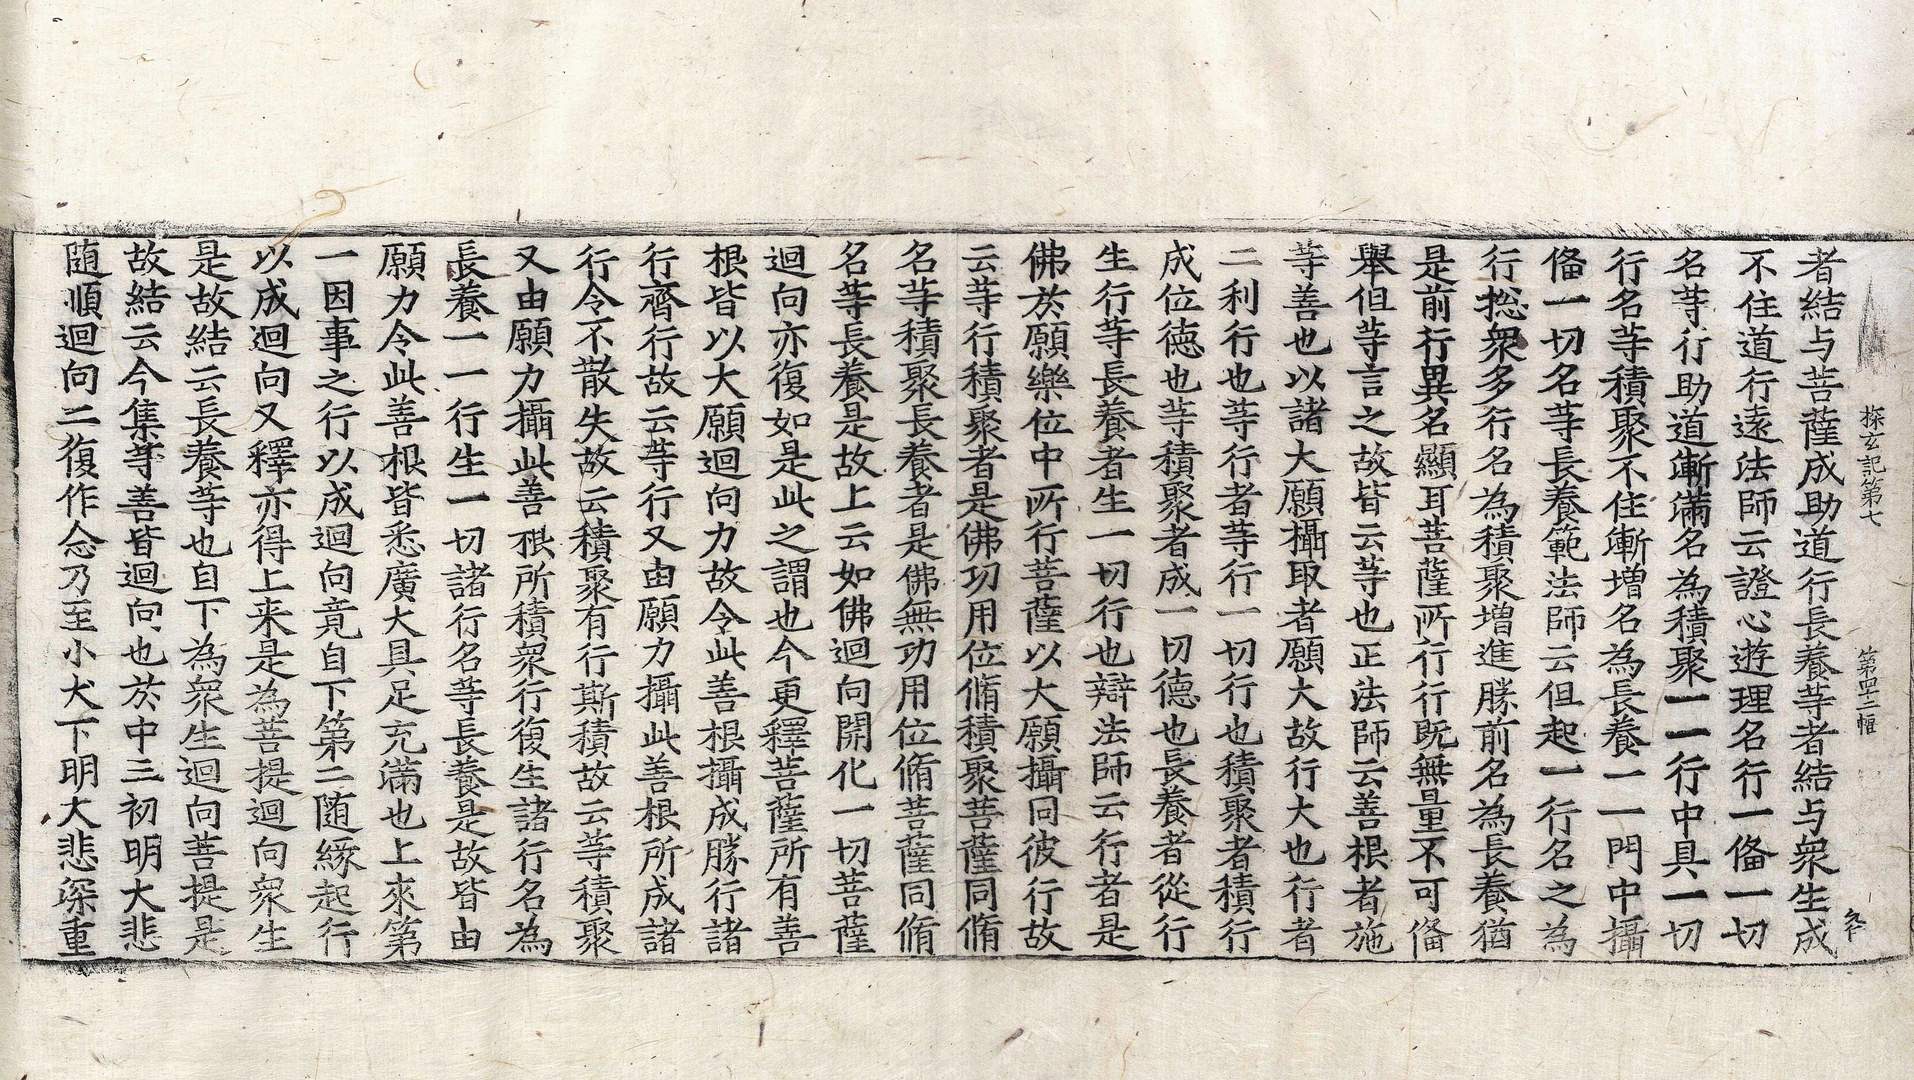 探玄記第七　第四十二幅
者結与菩薩成助道行長養等者結与衆生成
不住道行遠法師云證心遊理名行一俻一切
名等行助道漸滿名為積聚一一行中具一切
行名等積聚不住漸增名為長養一一門中攝
俻一切名等長養範法師云但起一行名之為
行揔衆多行名為積聚增進勝前名為長養猶
是前行異名顯耳菩薩所行行既無量不可俻
舉但等言之故皆云等也正法師云善根者施
等善也以諸大願攝取者願大故行大也行者
二利行也等行者等行一切行也積聚者積行
成位德也等積聚者成一切德也長養者從行
生行等長養者生一切行也辯法師云行者是
佛於願樂位中所行菩薩以大願攝同彼行故
云等行積聚者是佛功用位脩積聚菩薩同脩
名等積聚長養者是佛無功用位脩菩薩同脩
名等長養是故上云如佛迴向開化一切菩薩
迴向亦復如是此之謂也今更釋菩薩所有善
根皆以大願迴向力故令此善根攝成勝行諸
行齊行故云等行又由願力攝此善根所成諸
行令不散失故云積聚有行斯積故云等積聚
又由願力攝此善根所積衆行復生諸行名為
長養一一行生一切諸行名等長養是故皆由
願力令此善根皆悉廣大具足充滿也上來第
一因事之行以成迴向竟自下第二随緣起行
以成迴向又釋亦得上来是為菩提迴向衆生
是故結云長養等也自下為衆生迴向菩提是
故結云今集等善皆迴向也於中三初明大悲
随順迴向二復作念乃至小犬下明大悲深重